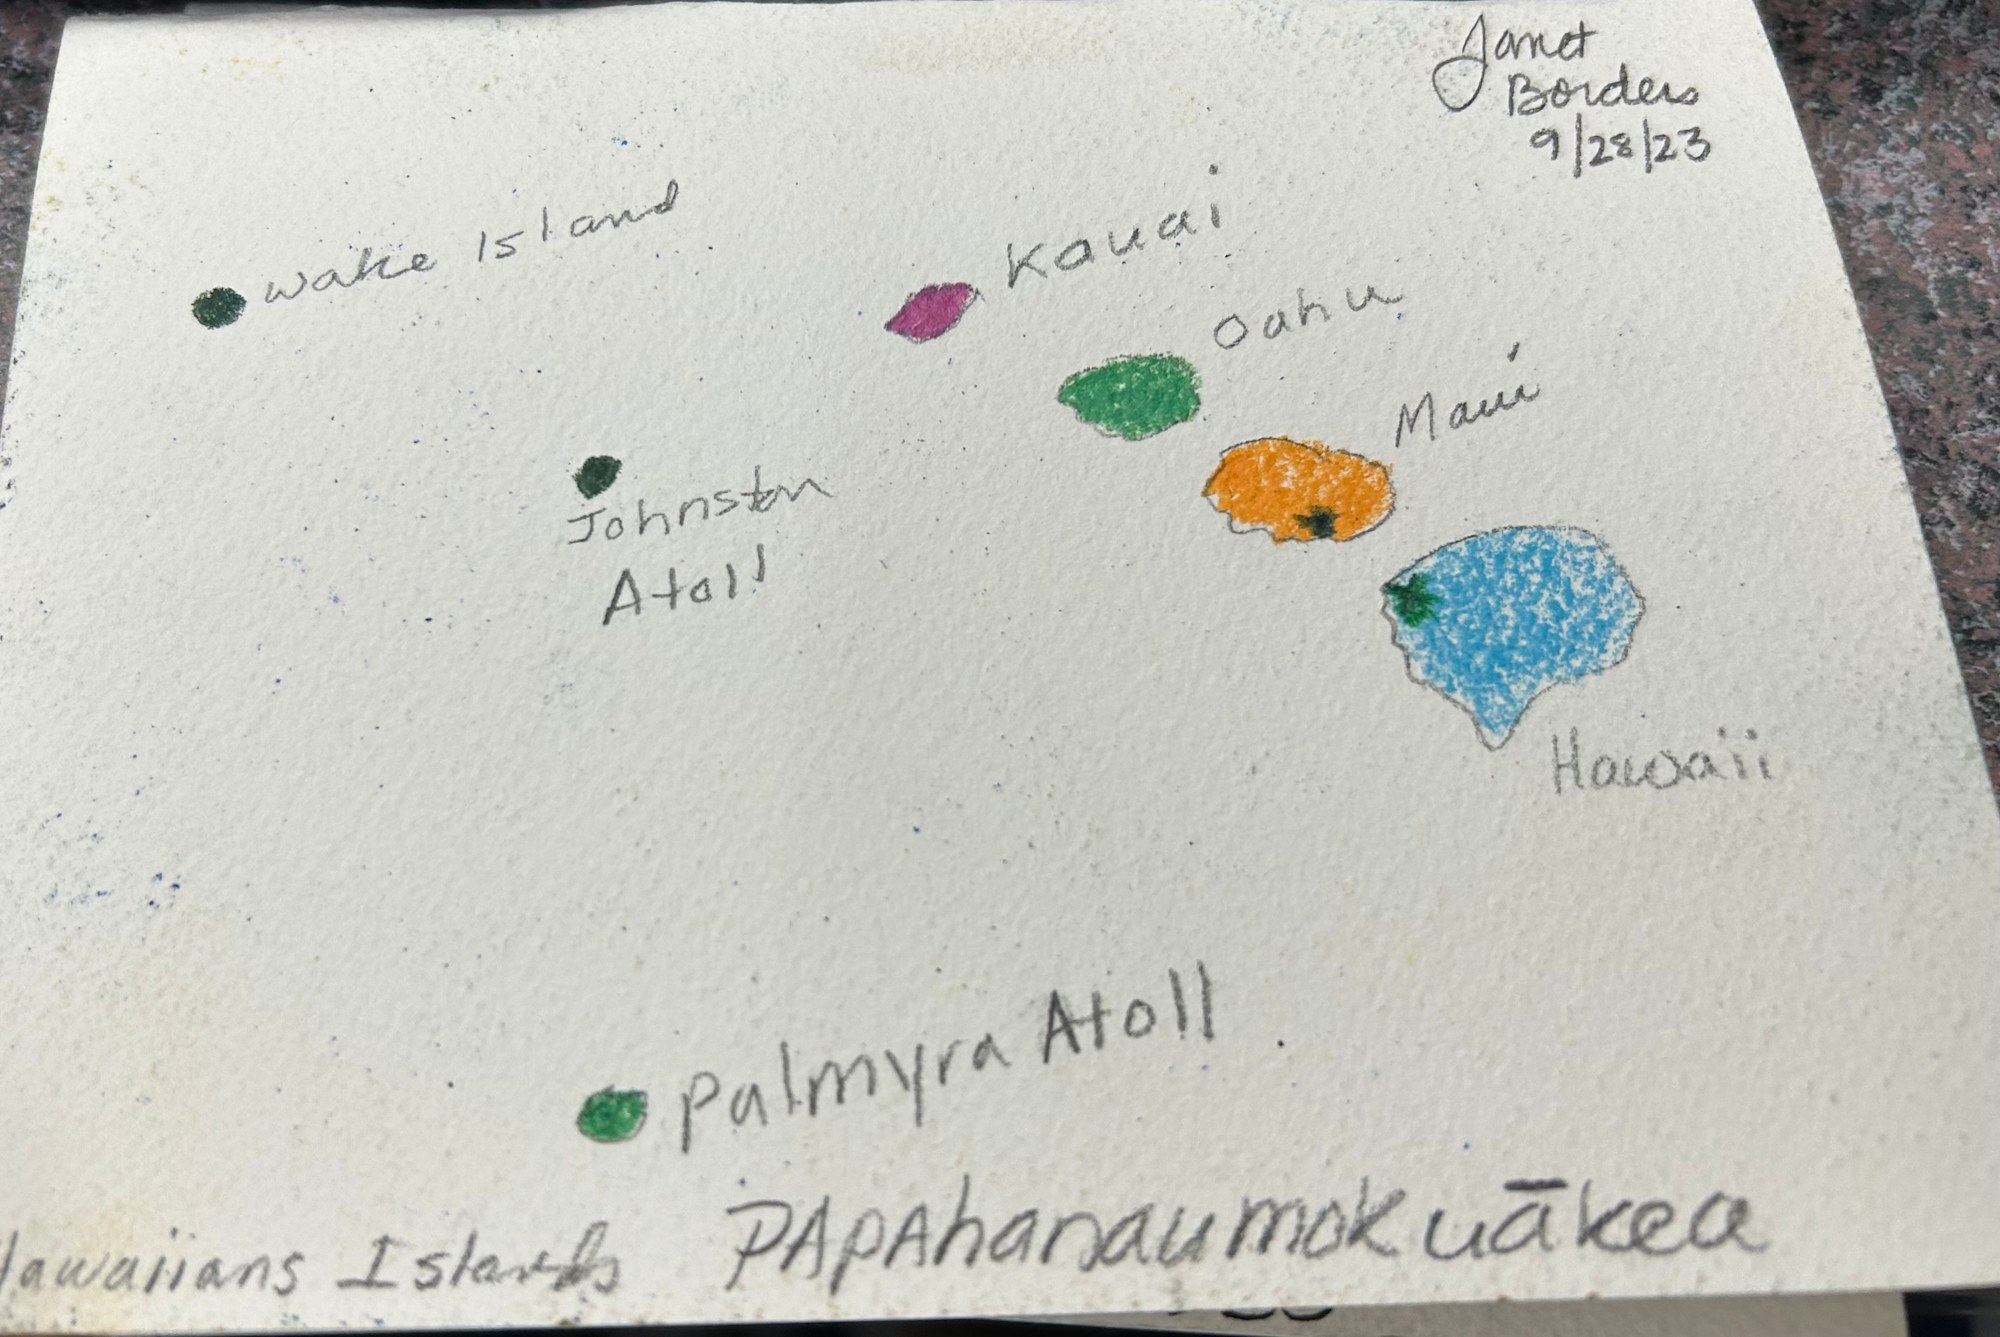 Janet
Borders
9/28/23
Wake Island
Kauai
Oahu
Maui
Johnston
Atoll
Hawaii
Palmyra Atoll
Hawaiians Islands PAPAhanaumokuākea